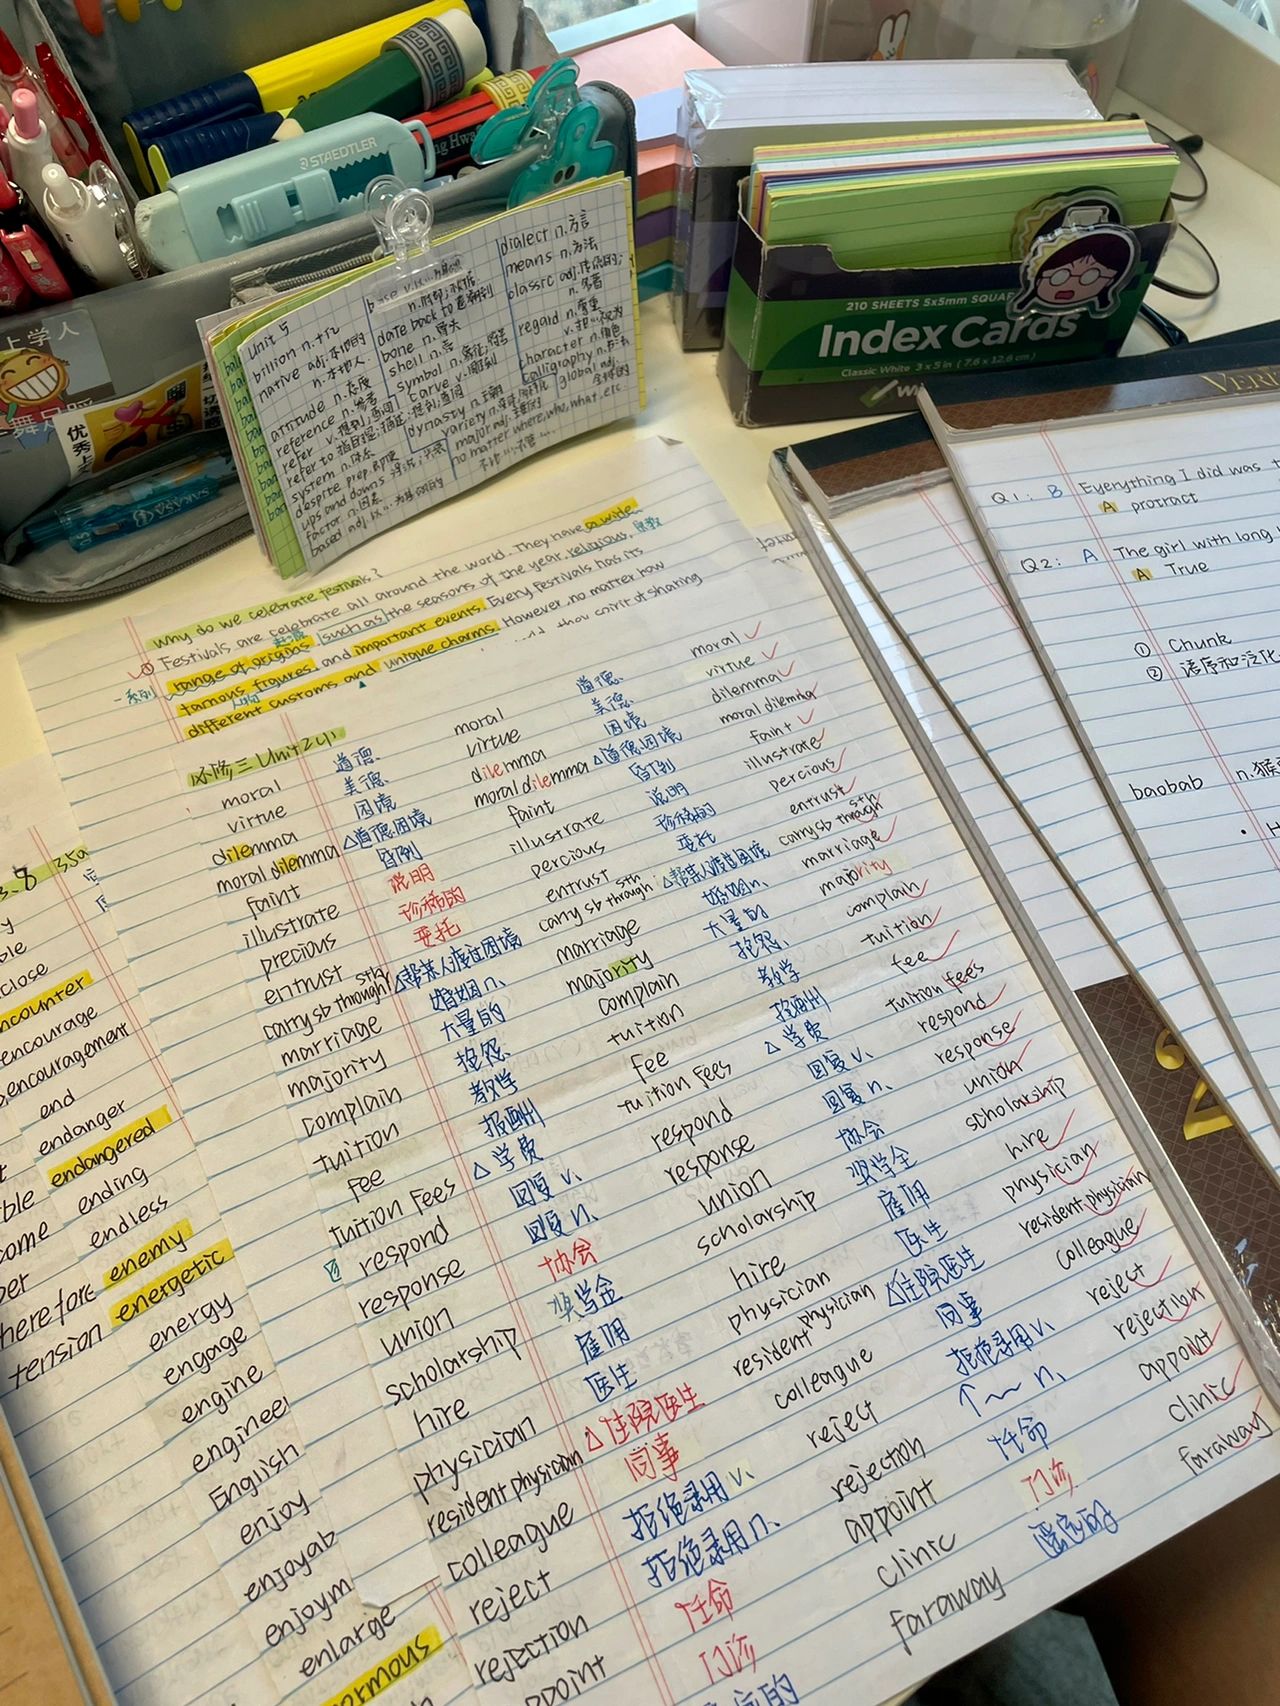 STAEDTLER
上学人
优秀
SAKASA
210 SHEETS 5x5mm SQUAR
Index Cards
Classic White 3 x 5 in ( 7.6 x 12.6 cm )
Unit 5
billion n.十亿
native adj.本地的
n.本地人
attitude n.态度
reference n.参考
refer v.提到;查阅
refer to 指的是;描述;提到;查阅
system n.体系
despite prep.即使
ups and downs 浮沉;兴衰
factor n.因素
based adj.以…为基础的
date back to 追溯到
bone n.骨头
shell n.壳
symbol n.象征;符号
carve v.雕刻
dynasty n.王朝
variety n.
major adj.主要的
no matter where, who, what, etc.
不论…不管…
dialect n.方言
means n.方法
classic adj.传统的;
n.名著
regard n.尊重
v.把…视为
character n.角色
calligraphy n.书法
global adj.
全球的
Why do we celebrate festivals?
① Festivals are celebrate all around the world. They have a wide
range of origins such as the seasons of the year, religious,
famous figures and important events. Every festivals has its
different customs and unique charms. However, no matter how
spirit of sharing
必修三 Unit2 up
moral 道德 moral 道德 moral
virtue 美德 virtue 美德 virtue
dilemma 困境 dilemma 困境 dilemma
moral dilemma △道德困境 moral dilemma △道德困境 moral dilemma
faint 昏倒 faint 昏倒 faint
illustrate 说明 illustrate 说明 illustrate
precious 珍稀的 percious 珍稀的 percious
entrust 委托 entrust 委托 entrust
carry sb through sth △帮某人度过困境 carry sb through sth △帮某人度过困境 carry sb through sth
marriage 婚姻n. marriage 婚姻n. marriage
majority 大量的 majority 大量的 majority
complain 抱怨 complain 抱怨 complain
tuition 教学 tuition 教学 tuition
fee 报酬 fee 报酬 fee
tuition fees △学费 tuition fees △学费 tuition fees
respond 回复v. respond 回复v. respond
response 回复n. response 回复n. response
union 协会 union 协会 union
scholarship 奖学金 scholarship 奖学金 scholarship
hire 雇佣 hire 雇佣 hire
physician 医生 physician 医生 physician
resident physician △住院医生 resident physician △住院医生 resident physician
colleague 同事 colleague 同事 colleague
reject 拒绝录用v. reject 拒绝录用v. reject
rejection 拒绝录用n. rejection ↑~ n. rejection
appoint 任命 appoint 任命 appoint
门诊 clinic 门诊 clinic
faraway 遥远的 faraway
3.8
close
encounter
encourage
encouragement
end
endanger
endangered
ending
endless
enemy
energetic
energy
engage
engine
enginee
English
enjoy
enjoyab
enjoym
enlarge
come
tension
Q1: B Everything I did was t
A protract
Q2: A The girl with long
A True
① Chunk
② 语序和泛化
baobab n.猴